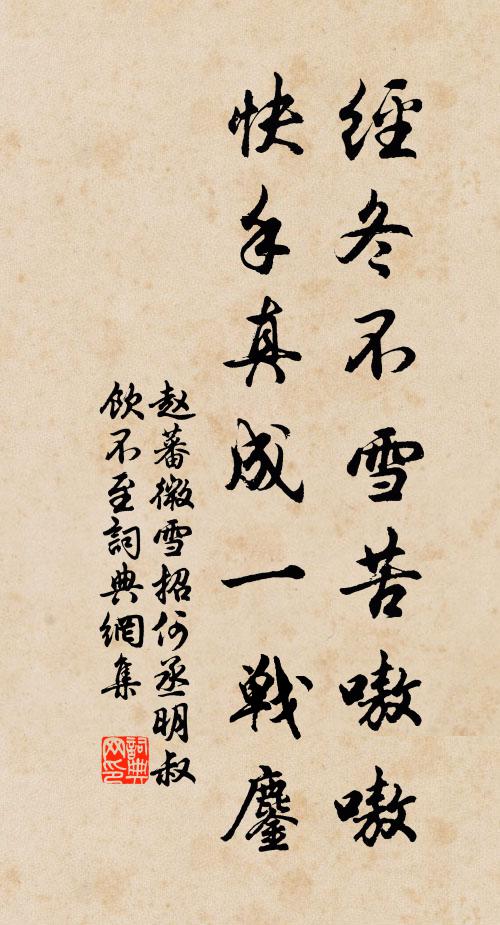 經冬不雪苦嗷嗷
快手真成一戰鏖
赵蕃微雪招何丞明叔
飲不至詞典網集
詞典网印